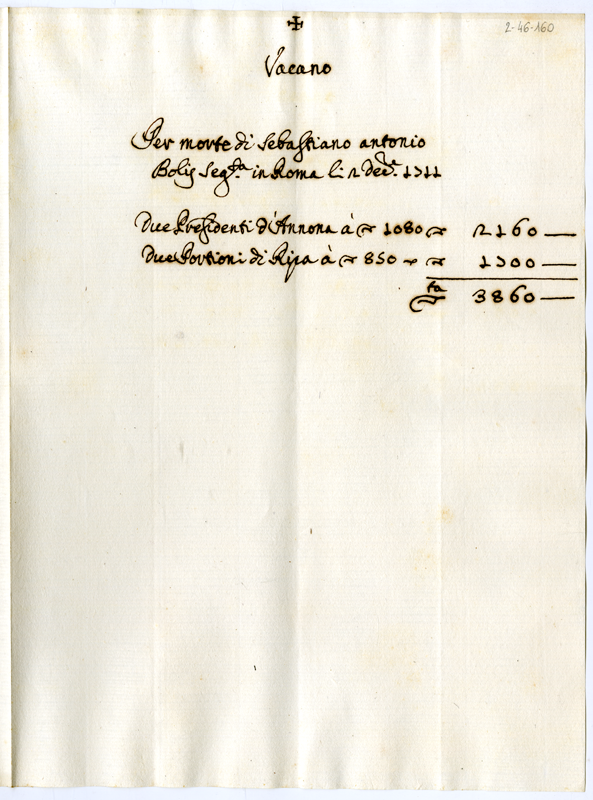 ✠
2-46-160
Vacano
Per morte di Sebastiano antonio
Bolis Seg.ta in Roma li 2 Dec.e 1711
Due Presidenti d'Annona à ~ 1080 ~ 2160 —
Due Portioni di Ripa à ~ 850 - ~ 1700 —
3860 —